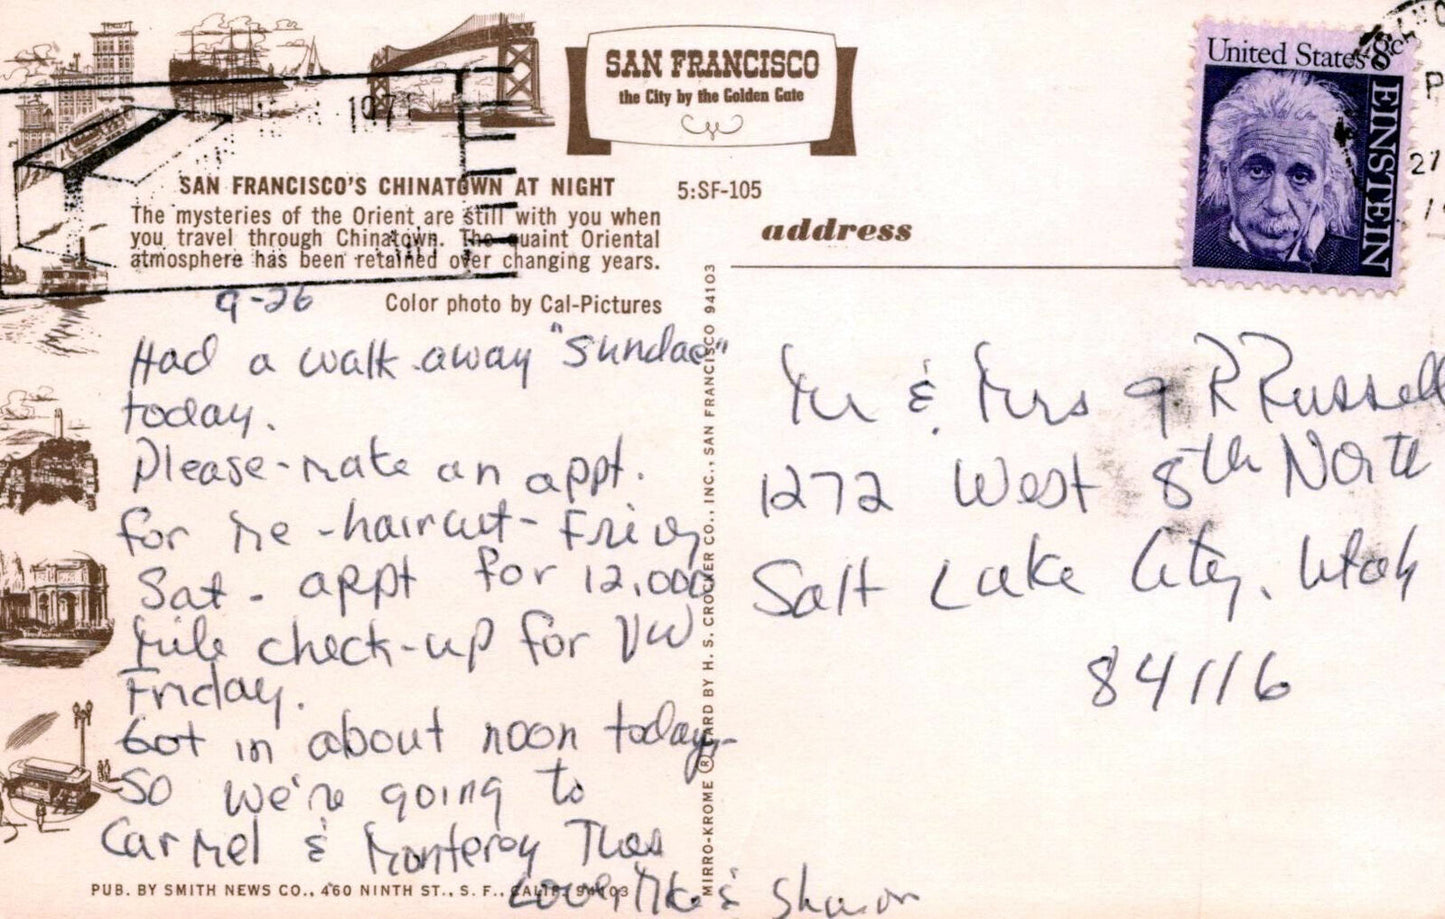 SAN FRANCISCO
the City by the Golden Gate
197
SAN FRANCISCO'S CHINATOWN AT NIGHT
5:SF-105
The mysteries of the Orient are still with you when
you travel through Chinatown. The quaint Oriental
atmosphere has been retained over changing years.
Color photo by Cal-Pictures
9-26
Had a walk away "sundae"
today.
Please-make an appt.
for me -haircut- Fri or
Sat - appt for 12,000
mile check-up for VW
Friday.
Got in about noon today-
so we're going to
Carmel & Monterey Thurs
Love, Mike & Sharon
PUB. BY SMITH NEWS CO., 460 NINTH ST., S. F., CALIF. 94103
MIRRO-KROME ® CARD BY H. S. CROCKER CO., INC., SAN FRANCISCO 94103
address
United States 8c
EINSTEIN
P
27
Mr & Mrs G. R Russell
1272 West 8th North
Salt Lake City, Utah
84116